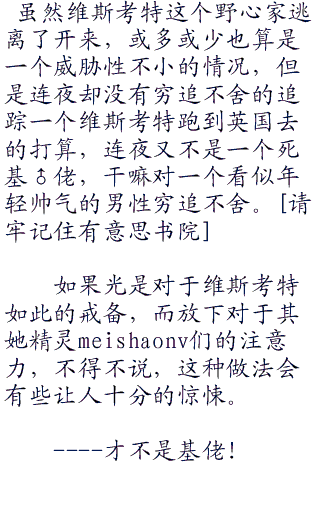 虽然维斯考特这个野心家逃
离了开来，或多或少也算是
一个威胁性不小的情况，但
是连夜却没有穷追不舍的追
踪一个维斯考特跑到英国去
的打算，连夜又不是一个死
基♂佬，干嘛对一个看似年
轻帅气的男性穷追不舍。[请
牢记住有意思书院]
如果光是对于维斯考特
如此的戒备，而放下对于其
她精灵meishaonv们的注意
力，不得不说，这种做法会
有些让人十分的惊悚。
----才不是基佬!